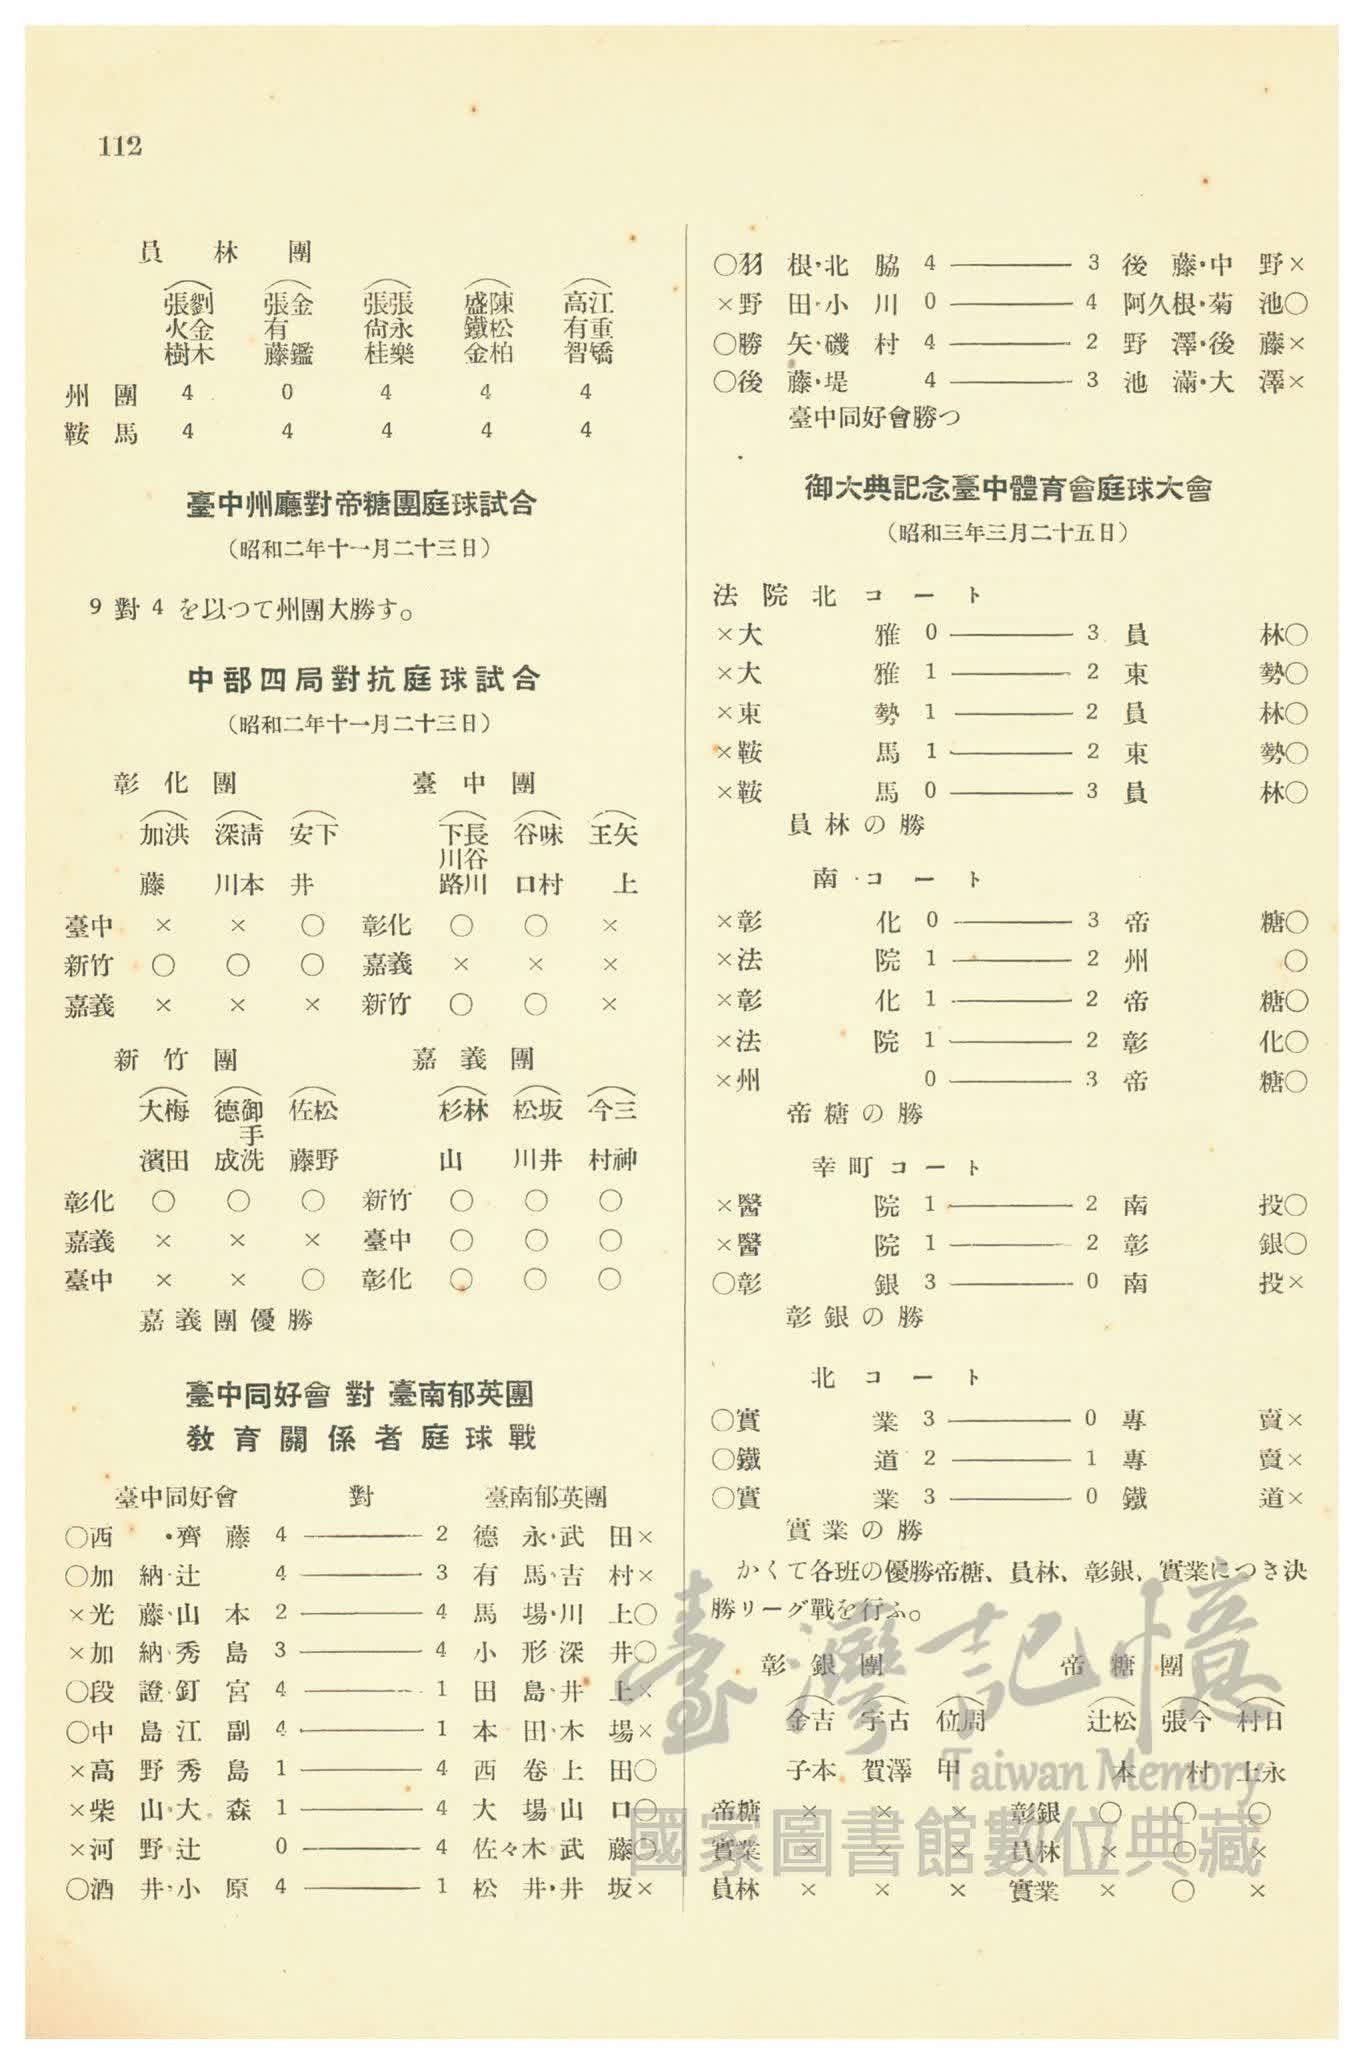 112
員林團
劉金木 張火樹
金鑑 張有藤
張永樂 張尙桂
陳松柏 盛鐵金
江重鐈 高有智
州團 4 0 4 4 4
鞍馬 4 4 4 4 4
臺中州廳對帝糖團庭球試合
（昭和二年十一月二十三日）
9對4を以つて州團大勝す。
中部四局對抗庭球試合
（昭和二年十一月二十三日）
彰化團
洪 加藤
淸本 深川
下 安井
臺中 × × ○
新竹 ○ ○ ○
嘉義 × × ×
臺中團
長谷川 下川路
味村 谷口
矢上 王
彰化 ○ ○ ×
嘉義 × × ×
新竹 ○ ○ ×
新竹團
梅田 大濱
御手洗 德成
松野 佐藤
彰化 ○ ○ ○
嘉義 × × ×
臺中 × × ○
嘉義團
林 杉山
坂井 松川
三神 今村
新竹 ○ ○ ○
臺中 ○ ○ ○
彰化 ○ ○ ○
嘉義團優勝
臺中同好會 對 臺南郁英團
敎育關係者庭球戰
臺中同好會 對 臺南郁英團
○西・齊藤 4 ——— 2 德永・武田×
○加納・辻 4 ——— 3 有馬・吉村×
×光藤・山本 2 ——— 4 馬場・川上○
×加納・秀島 3 ——— 4 小形・深井○
○段證・釘宮 4 ——— 1 田島・井上×
○中島・江副 4 ——— 1 本田・木場×
×高野・秀島 1 ——— 4 西卷・上田○
×柴山・大森 1 ——— 4 大場・山口○
×河野・辻 0 ——— 4 佐々木・武藤○
○酒井・小原 4 ——— 1 松井・井坂×
○羽根・北脇 4 ——— 3 後藤・中野×
×野田・小川 0 ——— 4 阿久根・菊池○
○勝矢・磯村 4 ——— 2 野澤・後藤×
○後藤・堤 4 ——— 3 池滿・大澤×
臺中同好會勝つ
御大典記念臺中體育會庭球大會
（昭和三年三月二十五日）
法院北コート
×大雅 0 ——— 3 員林○
×大雅 1 ——— 2 東勢○
×東勢 1 ——— 2 員林○
×鞍馬 1 ——— 2 東勢○
×鞍馬 0 ——— 3 員林○
員林の勝
南コート
×彰化 0 ——— 3 帝糖○
×法院 1 ——— 2 州○
×彰化 1 ——— 2 帝糖○
×法院 1 ——— 2 彰化○
×州 0 ——— 3 帝糖○
帝糖の勝
幸町コート
×醫院 1 ——— 2 南投○
×醫院 1 ——— 2 彰銀○
○彰銀 3 ——— 0 南投×
彰銀の勝
北コート
○實業 3 ——— 0 專賣×
○鐵道 2 ——— 1 專賣×
○實業 3 ——— 0 鐵道×
實業の勝
かくて各班の優勝帝糖、員林、彰銀、實業につき決
勝リーグ戰を行ふ。
彰銀團
吉本 金子
古澤 宇賀
周 位甲
帝糖 × × ×
實業 × × ×
員林 × × ×
帝糖團
松本 辻
今村 張
日永 村上
彰銀 ○ ○ ○
員林 × ○ ×
實業 × ○ ×
臺灣記憶
Taiwan Memory
國家圖書館數位典藏